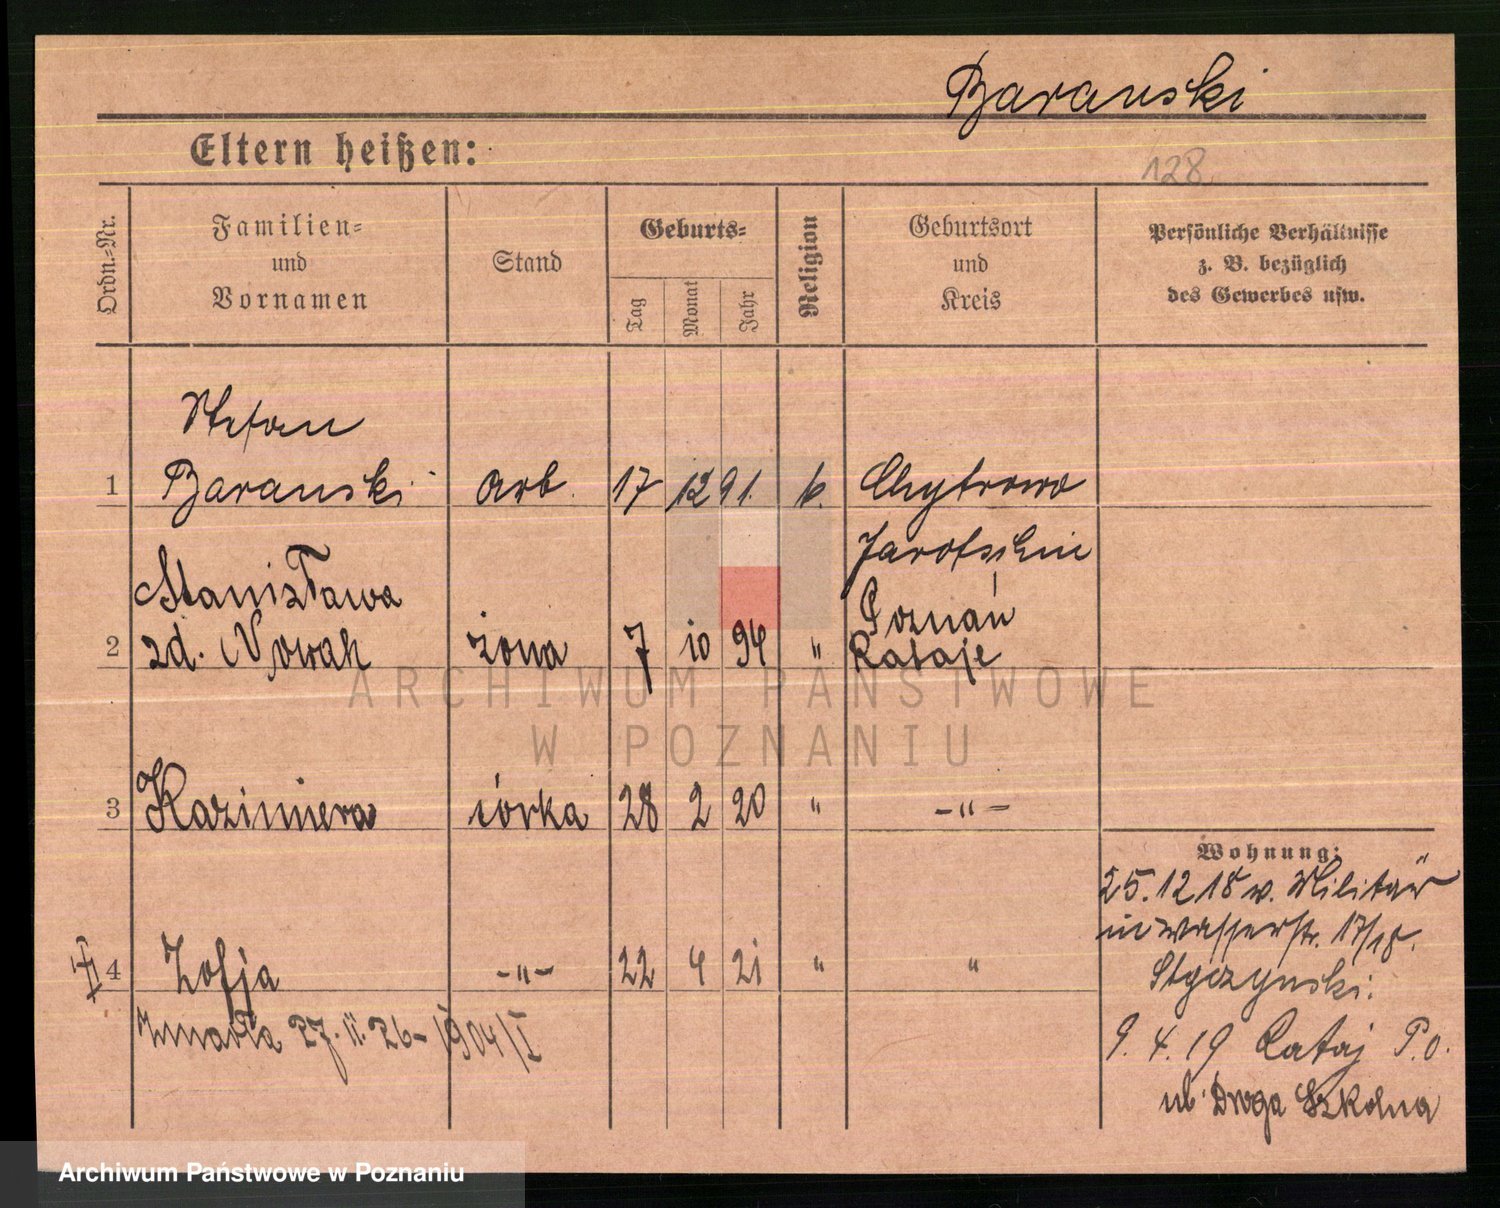 Baranski
Eltern heißen:
128
Ordn.-Nr.
Familien-
und
Vornamen
Stand
Geburts-
Tag
Monat
Jahr
Religion
Geburtsort
und
Kreis
Persönliche Verhältnisse
z. B. bezüglich
des Gewerbes usw.
Stefan
1 Baranski Arb. 17 12 91. k. Chytrowo
Jarotschin
Stanisława Poznań
2 zd. Nowak żona 7 10 94 " Rataje
3 Kazimiera córka 28 2 20 " -"-
Wohnung:
25.12 18 v. Militär
in Wasserstr. 17/18.
4 Zofja -"- 22 4 21 " "
Styczynski.
Zmarła 27. II. 26 - 1904/I
9. 4. 19 Rataj P.O.
ul. Droga Szkolna
ARCHIWUM PAŃSTWOWE
W POZNANIU
Archiwum Państwowe w Poznaniu